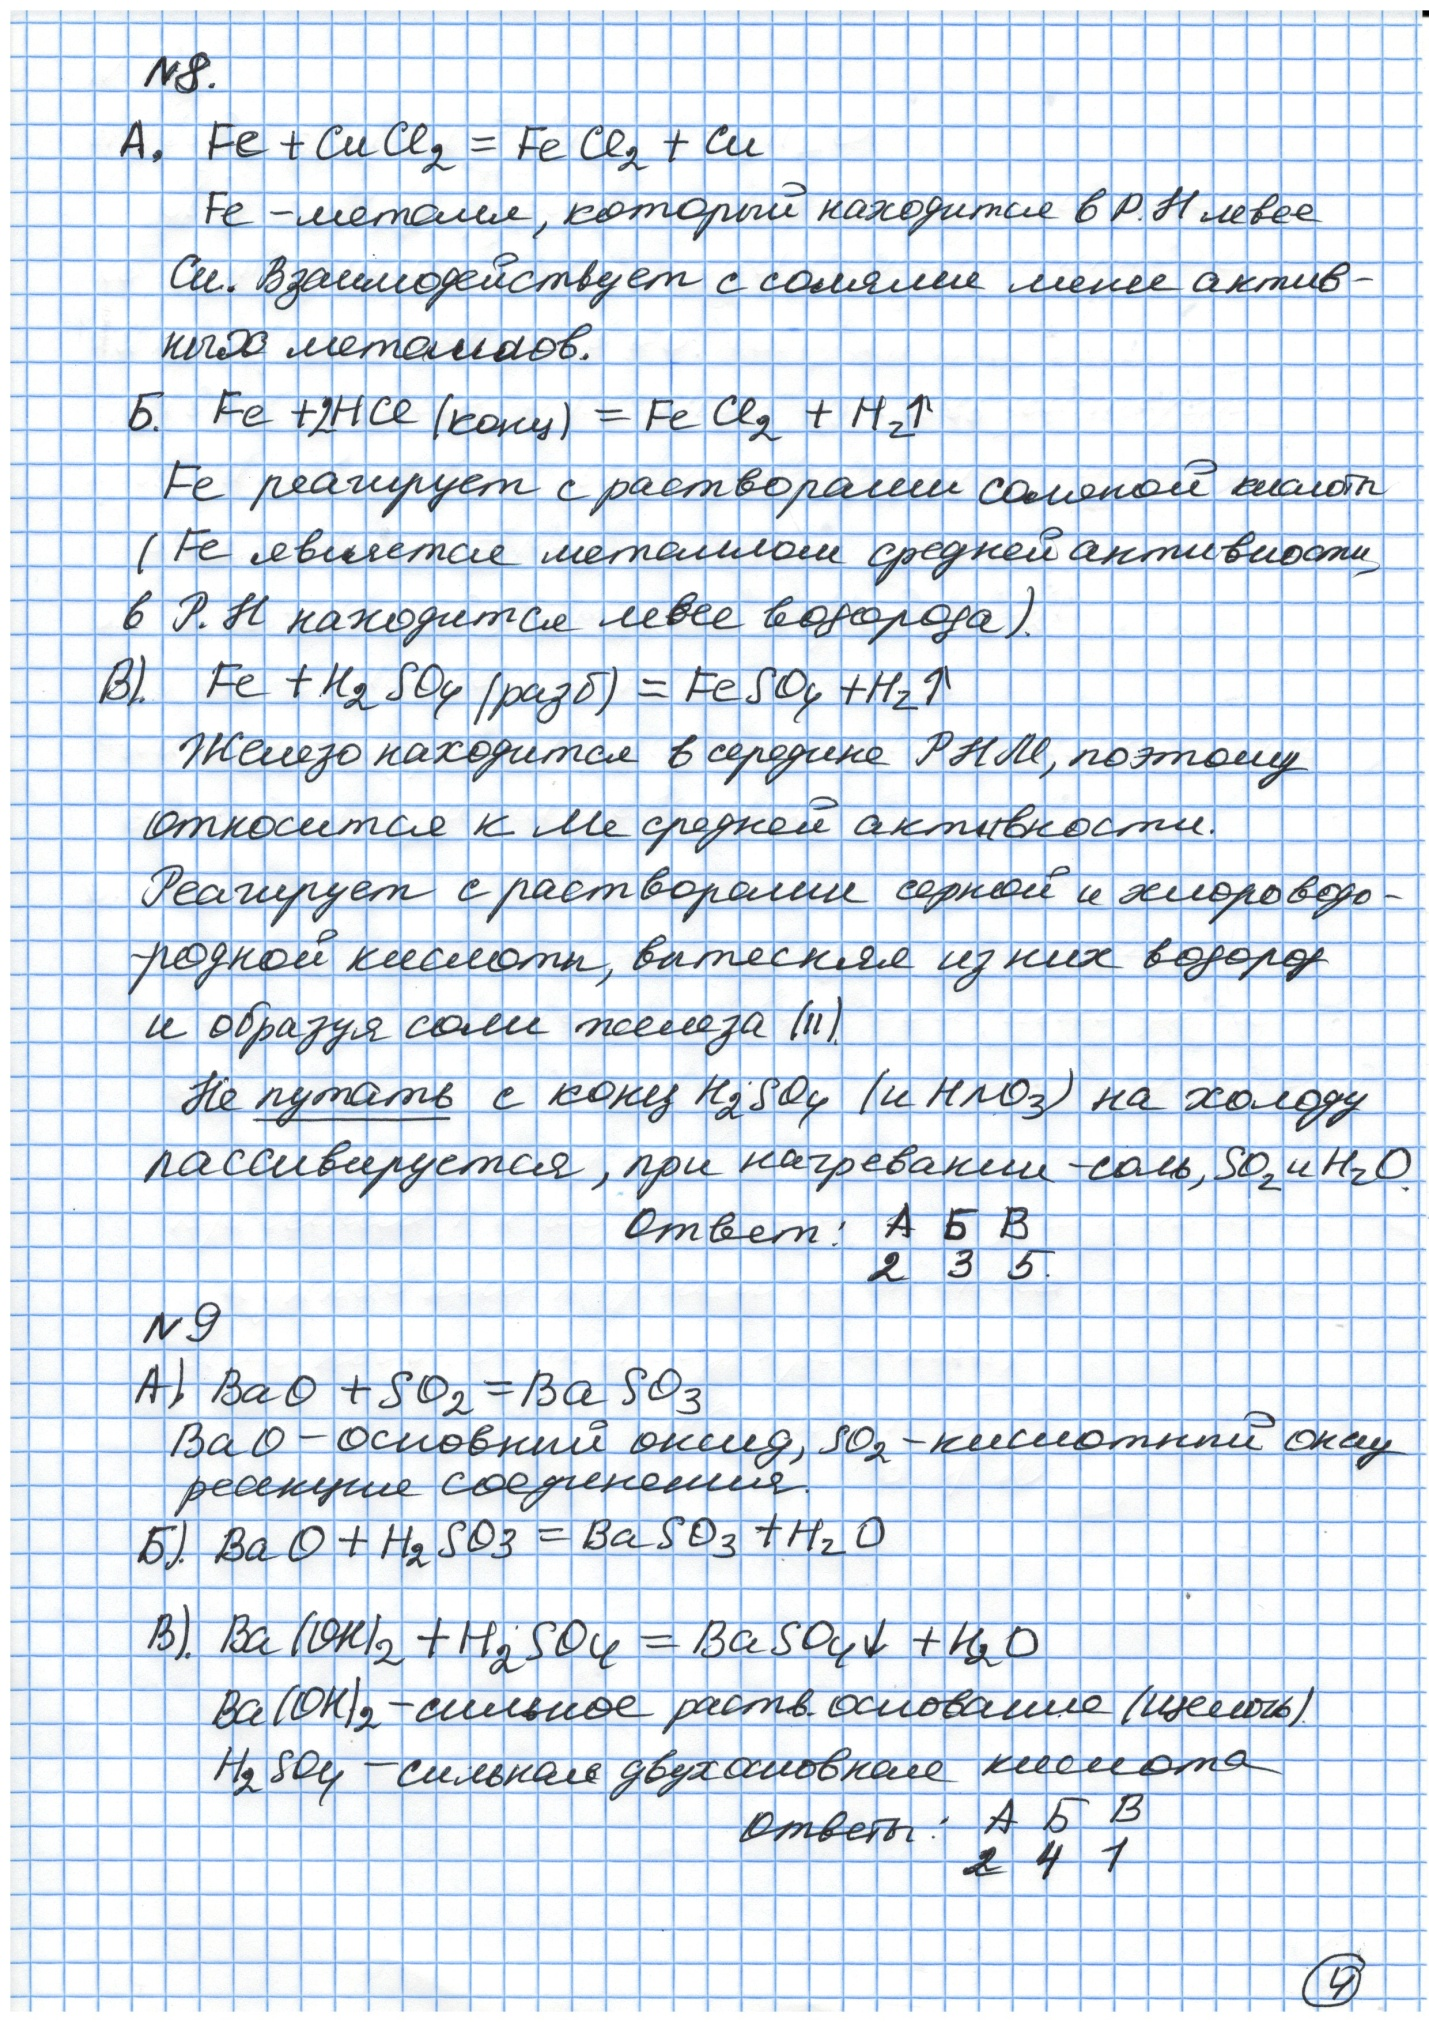 №8.
А. Fe + CuCl2 = FeCl2 + Cu
Fe – металл, который находится в Р.Н левее
Cu. Взаимодействует с солями менее актив-
ных металлов.
Б. Fe + 2HCl (конц) = FeCl2 + H2↑
Fe реагирует с растворами соляной кислоты
(Fe является металлом средней активности,
в Р.Н находится левее водорода).
В). Fe + H2SO4 (разб) = FeSO4 + H2↑
Железо находится в середине РНМ, поэтому
относится к Ме средней активности.
Реагирует с растворами серной и хлороводо-
-родной кислоты, вытесняя из них водород
и образуя соли железа (II).
Не путать с конц H2SO4 (и HNO3) на холоду
пассивируется, при нагревании – соль, SO2 и H2O.
Ответ: А Б В
2 3 5.
№9
А). BaO + SO2 = BaSO3
BaO – основный оксид, SO2 – кислотный оксид
реакция соединения.
Б). BaO + H2SO3 = BaSO3 + H2O
В). Ba(OH)2 + H2SO4 = BaSO4↓ + H2O
Ba(OH)2 – сильное раств. основание (щелочь).
H2SO4 – сильная двухосновная кислота
Ответы: А Б В
2 4 1
4